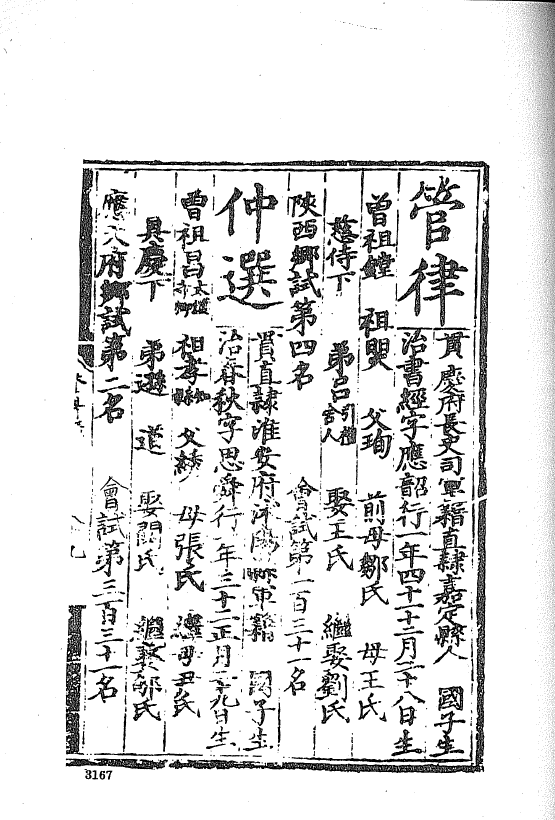 管律
貫慶府長史司軍籍直隸嘉定縣人 國子生
治書經字應韶行一年四十十二月二十八日生
曾祖鏜 祖 父珣 前母鄒氏 母王氏
慈侍下 弟呂引禮舍人 娶王氏 繼娶劉氏
陝西鄉試第四名 會試第一百三十一名
仲選
貫直隸淮安府沭陽縣軍籍 國子生
治春秋字思舜行一年三十二正月二十九日生
曾祖昌太僕寺卿 祖孝知縣 父綉 母張氏 繼母尹氏
具慶下 弟遜 道 娶關氏 繼娶邵氏
應天府鄉試第二名 會試第三百三十一名
3167